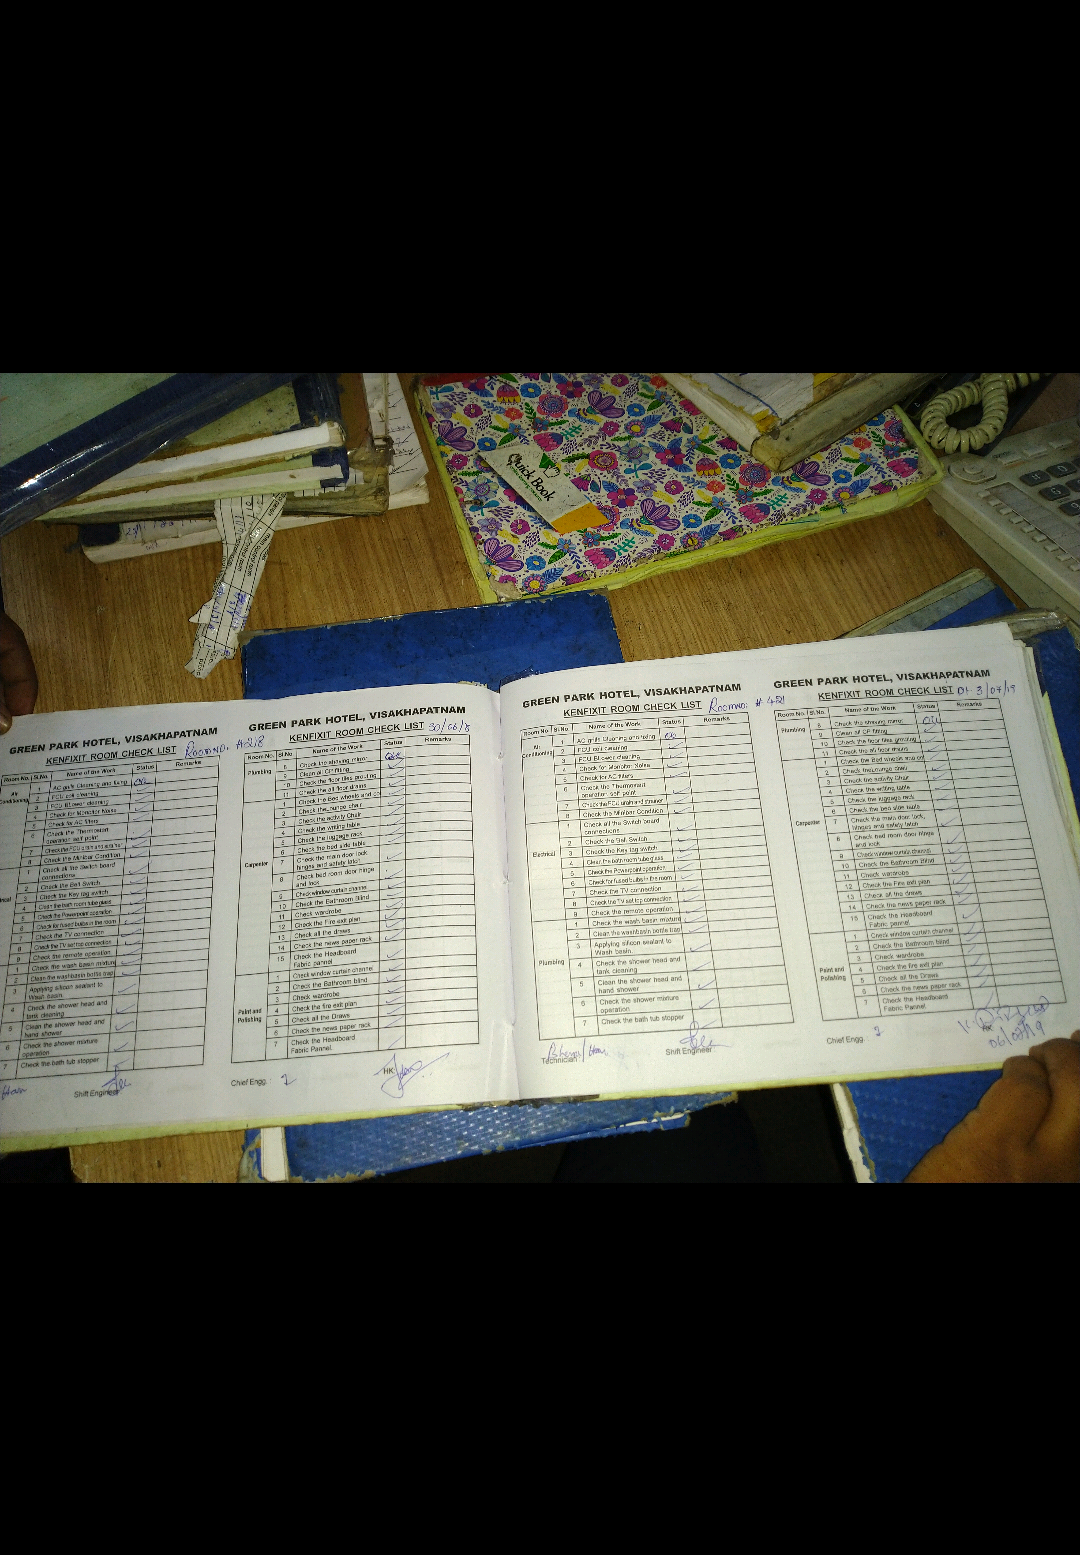 Quick Book
GREEN PARK HOTEL, VISAKHAPATNAM
KENFIXIT ROOM CHECK LIST Room no. #218
Room No. Sl.No. Name of the Work Status Remarks
Air Conditioning
1 AC grills Cleaning and fixing
2 FCU coil cleaning
3 FCU Blower cleaning
4 Check for Monotor Noise
5 Check for AC filters
6 Check the Thermostart operation self point
7
8 Check the Minibar Condition
1 Check all the Switch board connections
2 Check the Bell Switch
3 Check the Key tag switch
4 Clean the bath room tube glass
5 Check the Powerpoint operation
6 Check for fused bulbs in the room
7 Check the TV connection
8 Check the TV set top connection
9 Check the remote operation
1 Check the wash basin mixture
2 Clean the washbasin bottle trap
3 Applying silicon sealant to Wash basin.
4 Check the shower head and tank cleaning
5 Clean the shower head and hand shower
6 Check the shower mixture operation
7 Check the bath tub stopper
Shift Engineer
GREEN PARK HOTEL, VISAKHAPATNAM
KENFIXIT ROOM CHECK LIST
Room No. Sl.No. Name of the Work Status Remarks
Plumbing
8 Check the shaving mirror
9 Clean all CP fitting
10 Check the floor tiles grouting
11 Check the all floor drains
Carpenter
1 Check the Bed wheels and
2 Check the Lounge chair
3 Check the activity Chair
4 Check the writing table
5 Check the luggage rack
6 Check the bed side table
7 Check the main door lock hinges and safety latch
8 Check bed room door hinge and lock
9 Check window curtain channel
10 Check the Bathroom Blind
11 Check wardrobe
12 Check the Fire exit plan
13 Check all the draws
14 Check the news paper rack
15 Check the Headboard Fabric pannel
Paint and Polishing
1 Check window curtain channel
2 Check the Bathroom blind
3 Check wardrobe
4 Check the fire exit plan
5 Check all the Draws
6 Check the news paper rack
7 Check the Headboard Fabric Pannel.
Chief Engg. : HK
GREEN PARK HOTEL, VISAKHAPATNAM
KENFIXIT ROOM CHECK LIST Room no: #421
Room No. Sl.No. Name of the Work Status Remarks
Air Conditioning
1 AC grills Cleaning and fixing
2 FCU coil cleaning
3 FCU Blower cleaning
4 Check for Monotor Noise
5 Check for AC filters
6 Check the Thermostart operation self point
7
8 Check the Minibar Condition
Electrical
1 Check all the Switch board connections
2 Check the Bell Switch
3 Check the Key tag switch
4 Clean the bath room tube glass
5 Check the Powerpoint operation
6 Check for fused bulbs in the room
7 Check the TV connection
8 Check the TV set top connection
9 Check the remote operation
Plumbing
1 Check the wash basin mixture
2 Clean the washbasin bottle trap
3 Applying silicon sealant to Wash basin.
4 Check the shower head and tank cleaning
5 Clean the shower head and hand shower
6 Check the shower mixture operation
7 Check the bath tub stopper
Technician Shift Engineer
GREEN PARK HOTEL, VISAKHAPATNAM
KENFIXIT ROOM CHECK LIST Dt 3/07/19
Room No. Sl.No. Name of the Work Status Remarks
Plumbing
8 Check the shaving mirror
9 Clean all CP fitting
10 Check the floor tiles grouting
11 Check the all floor drains
Carpenter
1 Check the Bed wheels and
2 Check the Lounge chair
3 Check the activity Chair
4 Check the writing table
5 Check the luggage rack
6 Check the bed side table
7 Check the main door lock, hinges and safety latch
8 Check bed room door hinge and lock
9 Check window curtain channel
10 Check the Bathroom Blind
11 Check wardrobe
12 Check the Fire exit plan
13 Check all the draws
14 Check the news paper rack
15 Check the Headboard Fabric pannel
Paint and Polishing
1 Check window curtain channel
2 Check the Bathroom blind
3 Check wardrobe
4 Check the fire exit plan
5 Check all the Draws
6 Check the news paper rack
7 Check the Headboard Fabric Pannel.
Chief Engg. HK